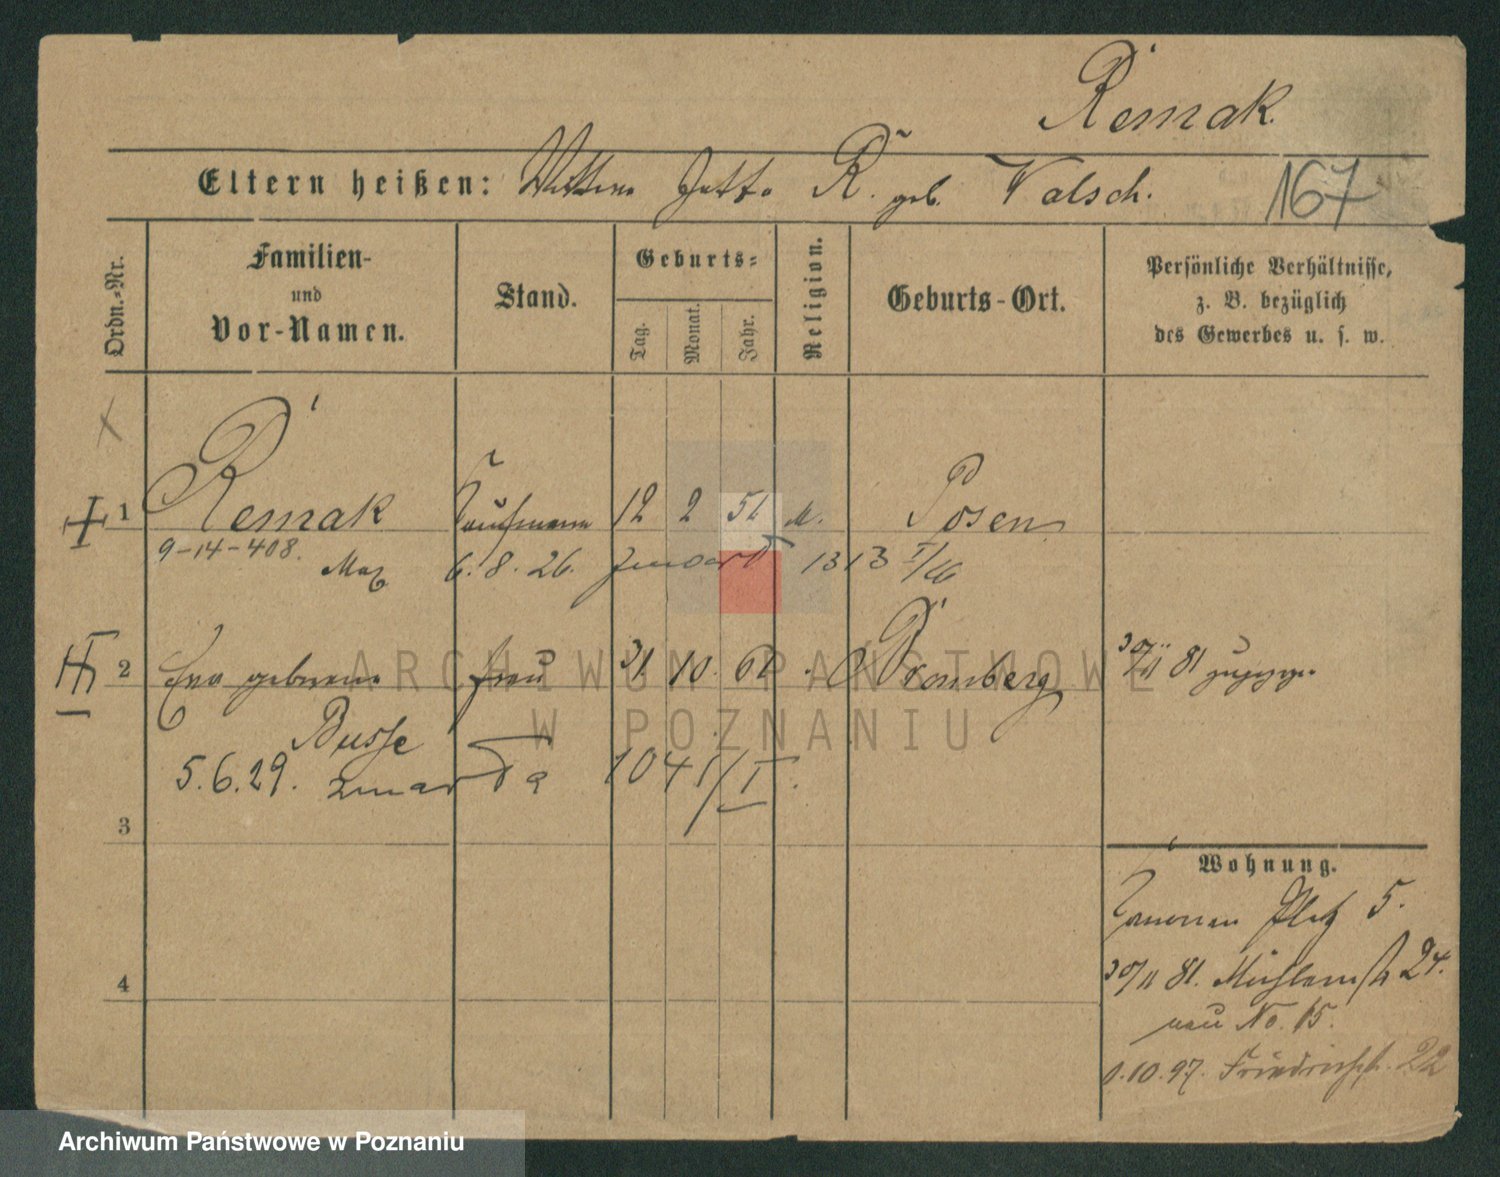 Remak.
Eltern heißen: Wittwe Jette R. geb. Walsch.
167
Ordn.-Nr.
Familien-
und
Vor-Namen.
Stand.
Geburts-
Tag.
Monat.
Jahr.
Religion.
Geburts-Ort.
Persönliche Verhältnisse,
z. B. bezüglich
des Gewerbes u. s. w.
1 Remak Kaufmann 12 2 51 m. Posen
9-14-408.
Max 6.8.26. 1313 I/26
2 geborene Frau 31. 10. 61 Bromberg 30/11 81
Busse
5.6.29. zmarła 1041/I.
3
Wohnung.
Platz 5.
4
30/11 81. Mühlenstr 24.
neu No. 15.
1.10.97. Friedrichst. 22
ARCHIWUM PAŃSTWOWE
W POZNANIU
Archiwum Państwowe w Poznaniu